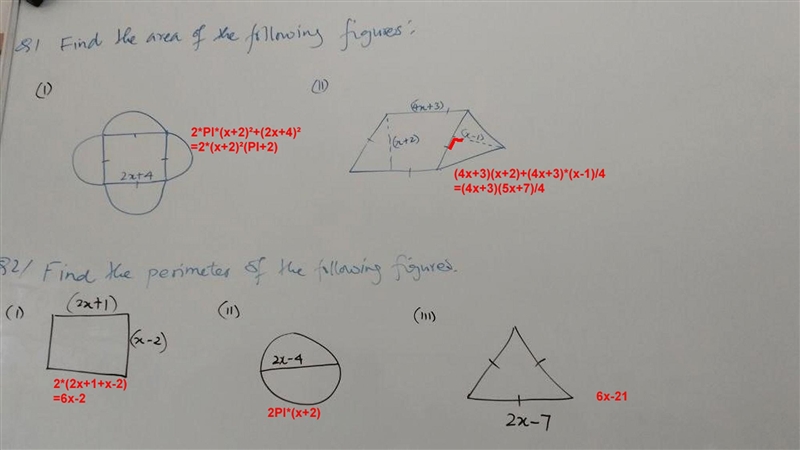 Q1 Find the area of the following figures:
(I)
2x+4
2*PI*(x+2)²+(2x+4)²
=2*(x+2)²(PI+2)
(II)
(4x+3)
(x+2)
(x-1)
(4x+3)(x+2)+(4x+3)*(x-1)/4
=(4x+3)(5x+7)/4
Q2/ Find the perimeter of the following figures.
(I)
(2x+1)
(x-2)
2*(2x+1+x-2)
=6x-2
(II)
2x-4
2PI*(x+2)
(III)
2x-7
6x-21